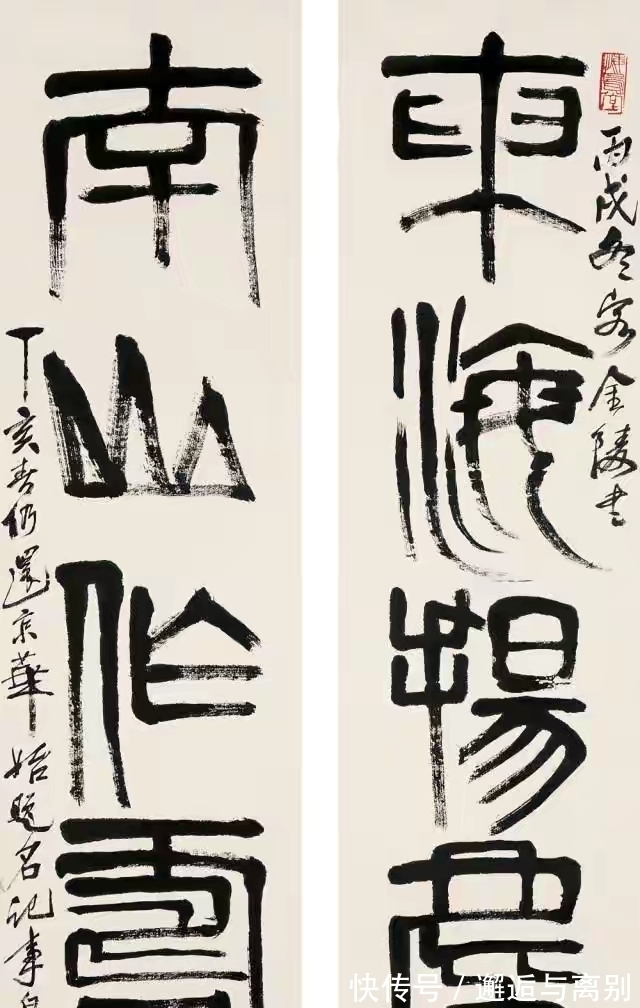 丙戌冬客金陵書
東海揚
南山作
丁亥春仍還京華始題名記事
快传号/邂逅与离别